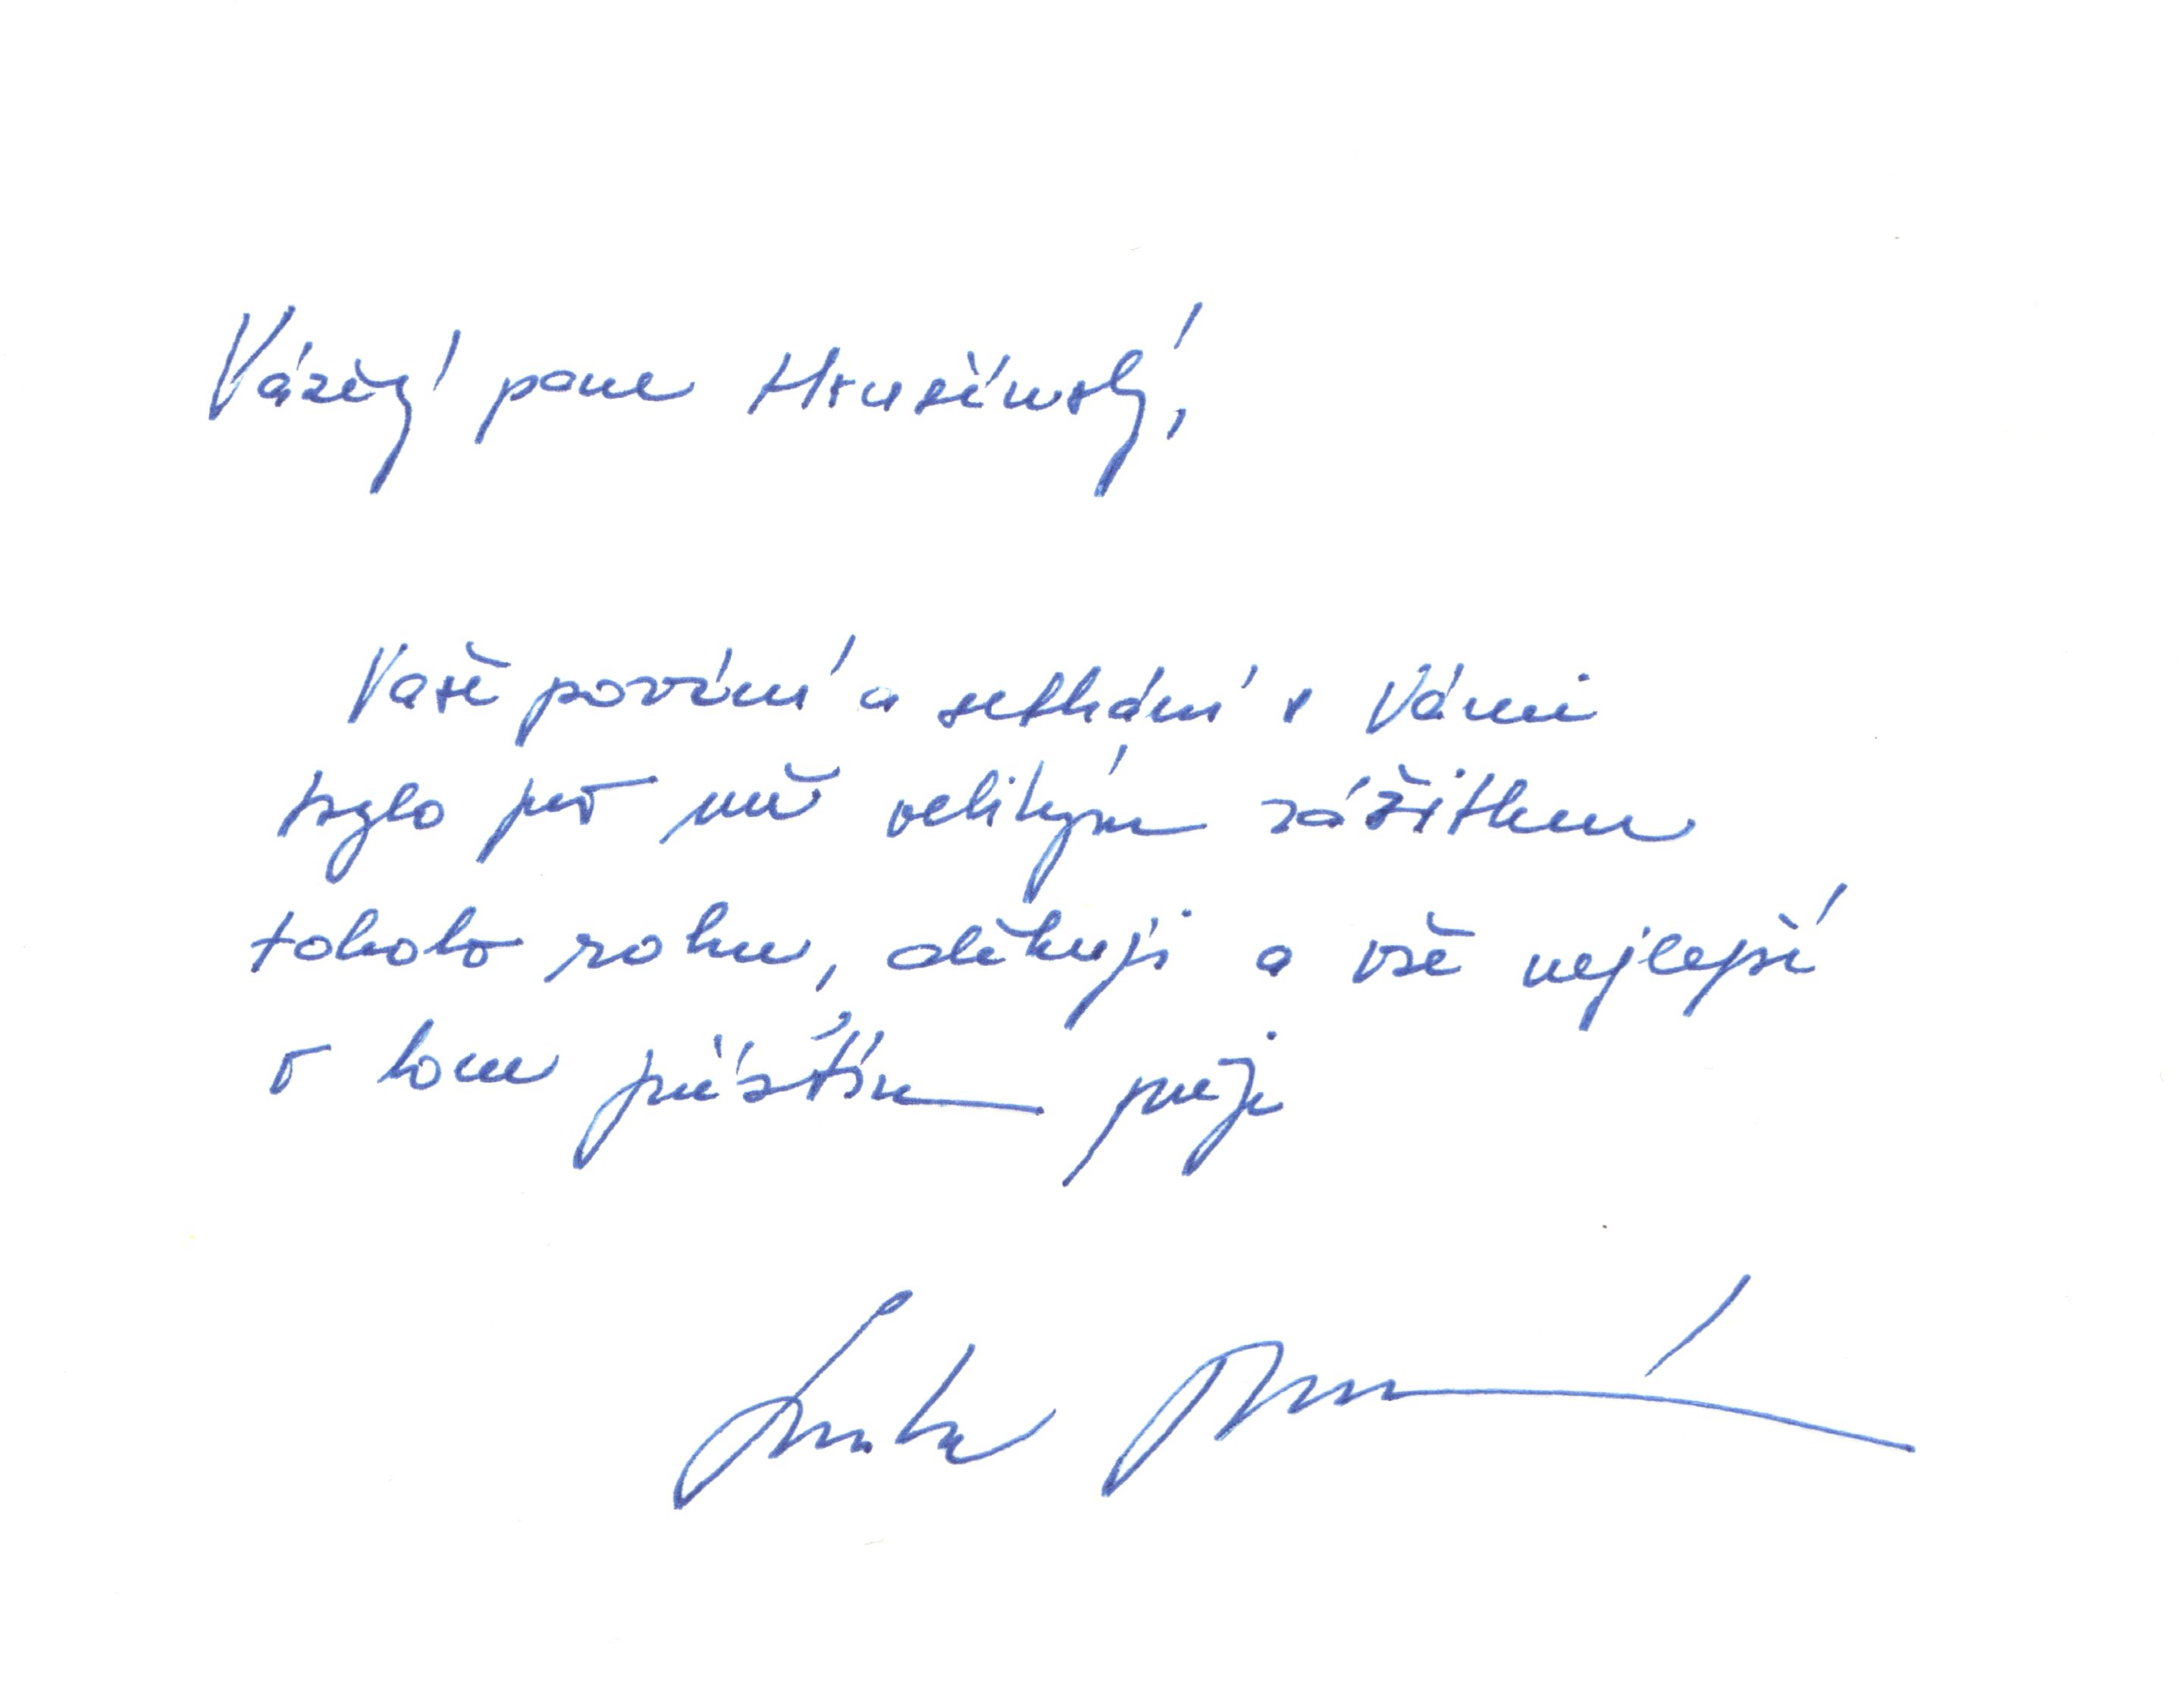 Vážený pane Hrušínský,
Vaše pozvání a setkání s Vámi
bylo pro mě velikým zážitkem
tohoto roku, děkuji a vše nejlepší
v tom příštím přeje